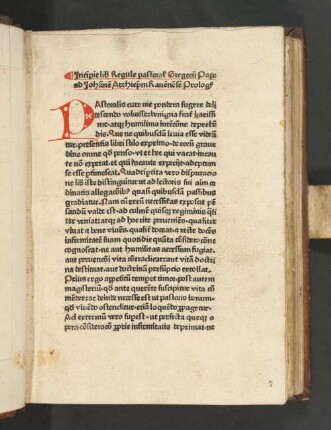 Incipit lib̃ Regule pastoral̃ Gregorii Pape
ad Johãnẽ Archiep̃m Rauenẽsẽ Prologꝰ
PAstoralis cure me pondera fugere deli
tescendo voluisse benigna frat̃ karissi
me atqꝫ humilima intẽcõne deprehẽ
dis. Que ne quibusdã leuia esse videã
tur. presentis libri stilo exprimo de eoꝝ graui
dine omne qd̃ penso vt et hec qui vacat incau
te nõ expetat et qui incaute expeciit adeptum
se esse ptimescat. Quadriptita vero disputacio
ne lib̃ iste distinguitur ut ad lectoris sui aĩm or
dinatis allegacõibꝰ quasi quibusdã passibus
gradiatur. Nam cũ rerũ necessitas exposcit pẽ
sandũ valde est ad culmẽ quisqꝫ regiminis qͣli
ter veniat atqꝫ ad hoc rite pueniẽs qualiter
viuat et bene viuẽs qualiṫ doceat et recte docẽs
infirmitatẽ suam quotidie quãta cõsideracõne
cognoscat ne aut humilitas accessum fugiat.
aut puencõi vita cõtradicat aut vitã doctri
na destituat aut doctrinã presũpcio extollat.
Prius ergo appetitũ tempet timor. post autem
magisteriũ qd̃ ante querẽte suscipitur vita cõ
mendet ac deinde necesse est ut pastoris bonum
qd̃ viuẽdo ostenditur eciã loquẽdo ꝓpagetur.
Ad extremũ vero supest ut perfecta queqꝫ o
pera cõsideracio ꝓprie infirmitatis deprimat ne